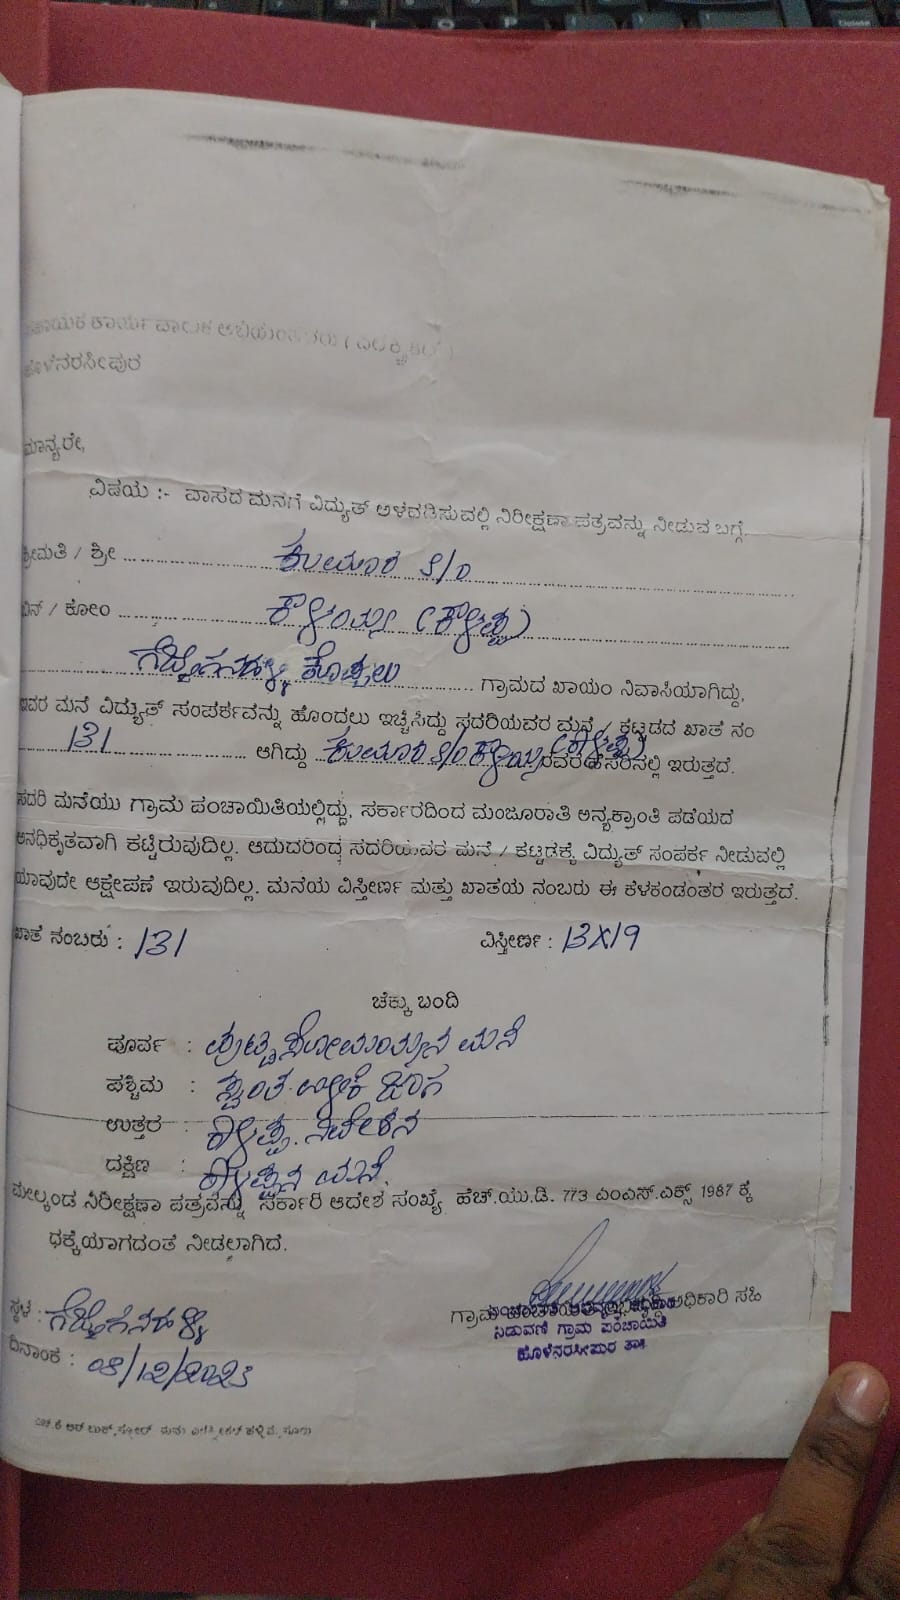 ಹೊಳೆನರಸೀಪುರ
ಮಾನ್ಯರೇ,
ವಿಷಯ :- ವಾಸದ ಮನೆಗೆ ವಿದ್ಯುತ್ ಅಳವಡಿಸುವಲ್ಲಿ ನಿರೀಕ್ಷಣಾ ಪತ್ರವನ್ನು ನೀಡುವ ಬಗ್ಗೆ.
ಶ್ರೀಮತಿ / ಶ್ರೀ ಕುಮಾರ S/O
ಬಿನ್ / ಕೋಂ
ಕೊಪ್ಪಲು ಗ್ರಾಮದ ಖಾಯಂ ನಿವಾಸಿಯಾಗಿದ್ದು,
ಇವರ ಮನೆ ವಿದ್ಯುತ್ ಸಂಪರ್ಕವನ್ನು ಹೊಂದಲು ಇಚ್ಛಿಸಿದ್ದು ಸದರಿಯವರ ಮನೆ / ಕಟ್ಟಡದ ಖಾತೆ ನಂ
131 ಆಗಿದ್ದು ಕುಮಾರ S/O ರವರ ಹೆಸರಿನಲ್ಲಿ ಇರುತ್ತದೆ.
ಸದರಿ ಮನೆಯು ಗ್ರಾಮ ಪಂಚಾಯಿತಿಯಲ್ಲಿದ್ದು, ಸರ್ಕಾರದಿಂದ ಮಂಜೂರಾತಿ ಅನ್ಯಕ್ರಾಂತಿ ಪಡೆಯದೆ
ಅನಧಿಕೃತವಾಗಿ ಕಟ್ಟಿರುವುದಿಲ್ಲ. ಆದುದರಿಂದ ಸದರಿಯವರ ಮನೆ / ಕಟ್ಟಡಕ್ಕೆ ವಿದ್ಯುತ್ ಸಂಪರ್ಕ ನೀಡುವಲ್ಲಿ
ಯಾವುದೇ ಆಕ್ಷೇಪಣೆ ಇರುವುದಿಲ್ಲ. ಮನೆಯ ವಿಸ್ತೀರ್ಣ ಮತ್ತು ಖಾತೆಯ ನಂಬರು ಈ ಕೆಳಕಂಡಂತರ ಇರುತ್ತದೆ.
ಖಾತೆ ನಂಬರು : 131 ವಿಸ್ತೀರ್ಣ : 13X19
ಚೆಕ್ಕು ಬಂದಿ
ಪೂರ್ವ : ಮನೆ
ಪಶ್ಚಿಮ : ಸ್ವಂತ ಜಾಗ
ಉತ್ತರ : ನಿವೇಶನ
ದಕ್ಷಿಣ : ಮನೆ.
ಮೇಲ್ಕಂಡ ನಿರೀಕ್ಷಣಾ ಪತ್ರವನ್ನು ಸರ್ಕಾರಿ ಆದೇಶ ಸಂಖ್ಯೆ ಹೆಚ್.ಯು.ಡಿ. 773 ಎಂಎಸ್.ಎಕ್ಸ್ 1987 ಕ್ಕೆ
ಧಕ್ಕೆಯಾಗದಂತೆ ನೀಡಲಾಗಿದೆ.
ಗ್ರಾಮ ಅಧಿಕಾರಿ ಸಹಿ
ನಿಡುವಣಿ ಗ್ರಾಮ ಪಂಚಾಯಿತಿ
ಹೊಳೆನರಸೀಪುರ ತಾ||
ಸ್ಥಳ :
ದಿನಾಂಕ : 08/12/2023